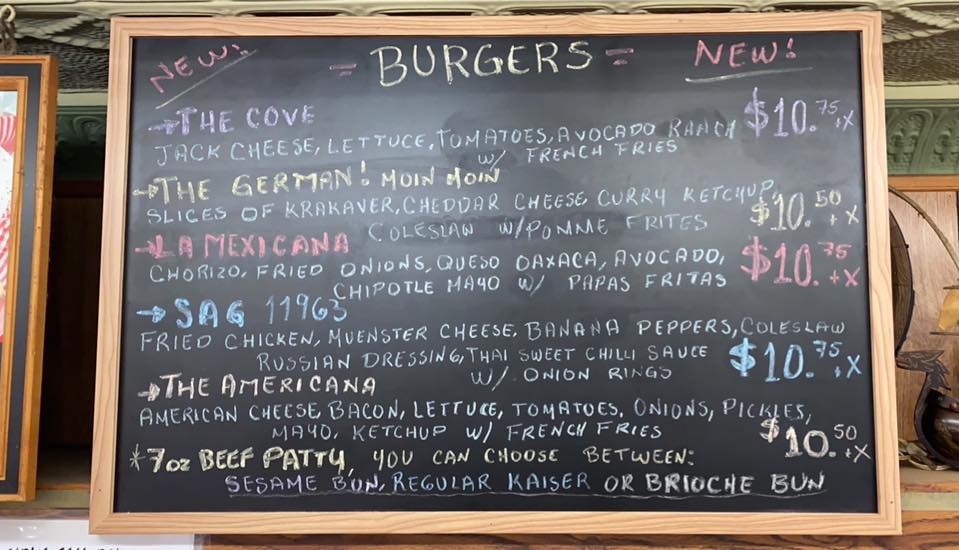 NEW! = BURGERS = NEW!
→THE COVE $10.75+X
JACK CHEESE, LETTUCE, TOMATOES, AVOCADO RANCH
W/ FRENCH FRIES
→THE GERMAN! MOIN MOIN
SLICES OF KRAKAVER, CHEDDAR CHEESE CURRY KETCHUP, $10.50+X
COLESLAW W/ POMME FRITES
→LA MEXICANA $10.75+X
CHORIZO, FRIED ONIONS, QUESO OAXACA, AVOCADO,
CHIPOTLE MAYO W/ PAPAS FRITAS
→SAG 11963
FRIED CHICKEN, MUENSTER CHEESE, BANANA PEPPERS, COLESLAW
RUSSIAN DRESSING, THAI SWEET CHILLI SAUCE $10.75+X
W/ ONION RINGS
→THE AMERICANA
AMERICAN CHEESE BACON, LETTUCE, TOMATOES, ONIONS, PICKLES,
MAYO, KETCHUP W/ FRENCH FRIES $10.50+X
*7oz BEEF PATTY, YOU CAN CHOOSE BETWEEN:
SESAME BUN, REGULAR KAISER OR BRIOCHE BUN